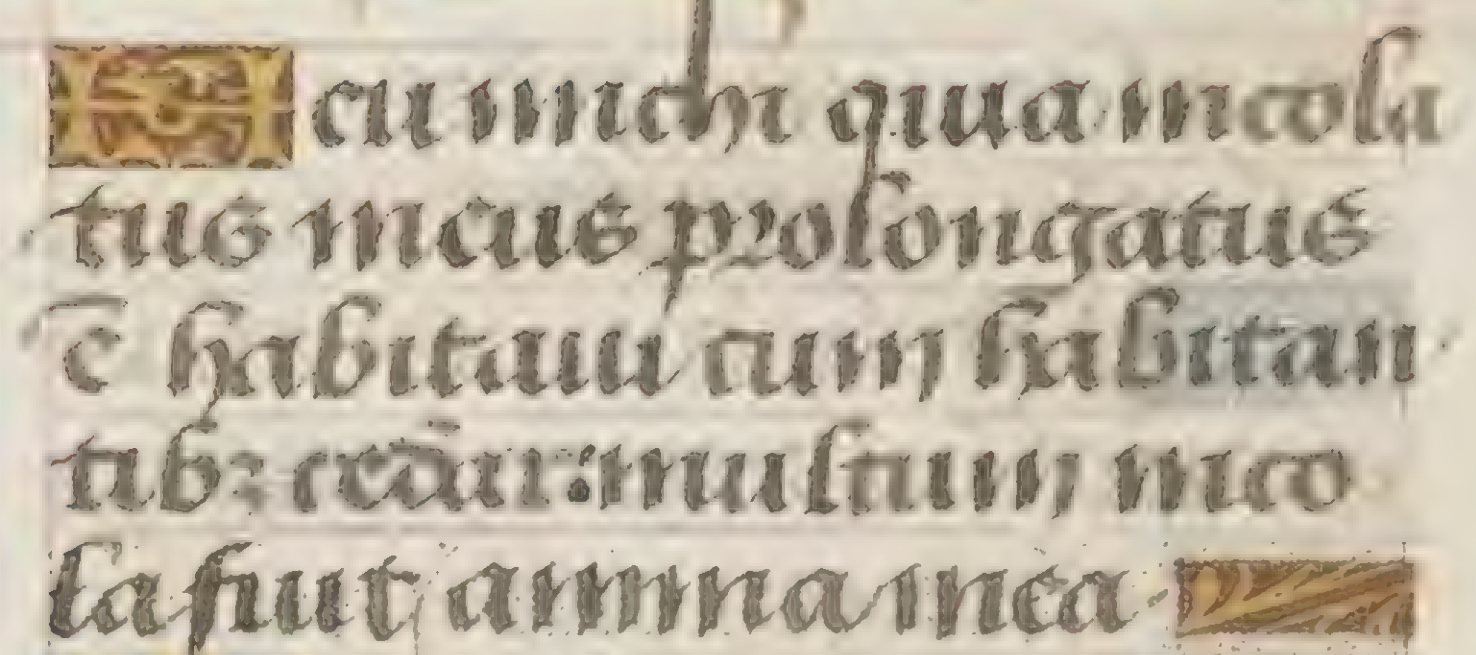 Heu michi quia incola
tus meus prolongatus
ē habitaui cum habitan
tibꝫ cedar: multum inco
la fuit anima mea